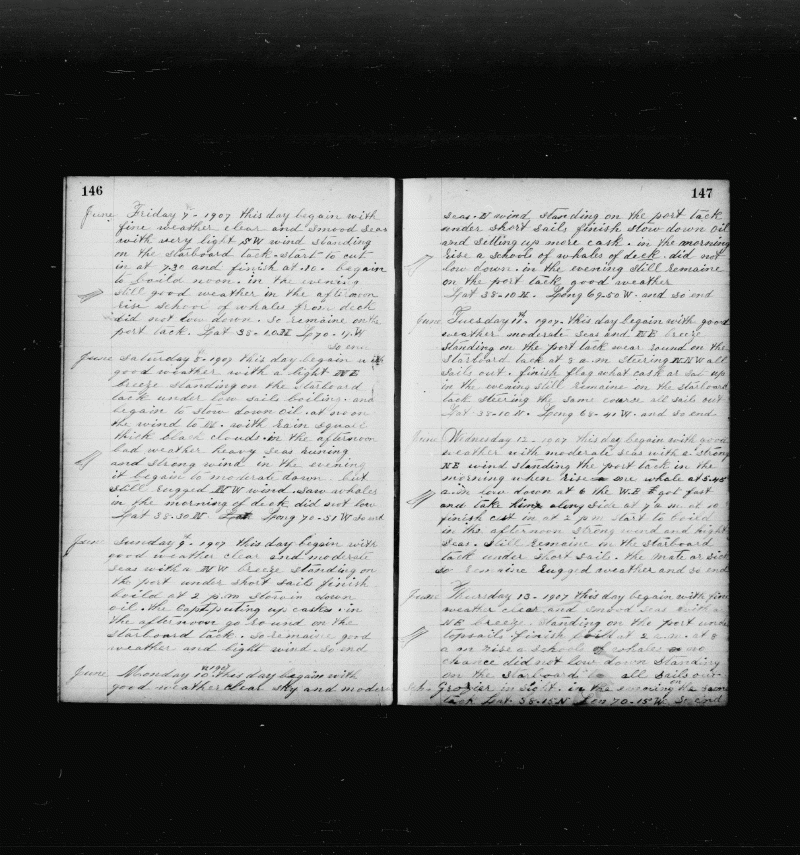 146
June Friday 7- 1907 this day begain with
fine weather clear and smood seas
with very light SW wind standing
on the starboard tack. start to cut
in at 7.30 and finish at 10. begain
to boild noon. in the evening
still good weather in the afternoon
rise school of whales from deck
did not low down. so remaine on the
port tack. Lat 38-10 N Lg 70-4 W
So end
June Saturday 8- 1907 this day begain with
good weather with a light NE
breeze standing on the starboard
tack under low sails boiling. and
begain to stow down oil. at noon
the wind to with rain squall
thick black clouds. in the afternoon
bad weather heavy seas runing
and strong wind in the evening
it begain to moderate down. but
still rugged NW wind. saw whales
in the morning of deck did not low
Lat 38-30 N Long 70-51 W So end
June Sunday 9- 1907 this day begain with
good weather clear and moderate
seas with a NW breeze standing on
the port under short sails finish
boild at 2 p.m. stowin down
oil. the Capt puting up casks. in
the afternoon go round on the
starboard tack. so remaine good
weather and light wind. so end
June Monday 10- 1907 this day begain with
good weather clear sky and moderate
147
seas. N wind standing on the port tack
under short sails finish stow down oil
and setting up more cask. in the morning
rise a schools of whales of deck. did not
low down. in the evening still remaine
on the port tack. good weather
Lat 38-10 N. Long 69-50 W. and so end
June Tuesday 11th 1907. this day begain with good
weather moderate seas and NE breeze
standing on the port tack wear round on the
starboard tack at 8 a.m steering NNW all
sails out. finish flag what cask ar sat up
in the evening still remaine on the starboard
tack steering the same course all sails out
Lat 38-10 N. Long 68-41 W. and so end
June Wednesday 12- 1907 this day begain with good
weather with moderate seas with a strong
NE wind standing the port tack in the
morning when rise one whale at 5.45
a.m low down at 6 the W.B. got fast
and take him along side at 7 a.m. at 10
finish cut in at 2 p.m start to boild
in the afternoon strong wind and hight
seas. still remaine on the starboard
tack under short sails. the mate ar sick
so remaine rugged weather and so end
June Thursday 13- 1907 this day begain with fine
weather clear and smood seas with a
NE breeze. standing on the port under
topsails. finish boild at 2 a.m. at 8
a m rise a schools of whales no
chance did not low down standing
on the starboard all sails out
Sch. Grosier in sight. in the evening on the same
tack Lat 38-15 N Lon 70-15 W. So end